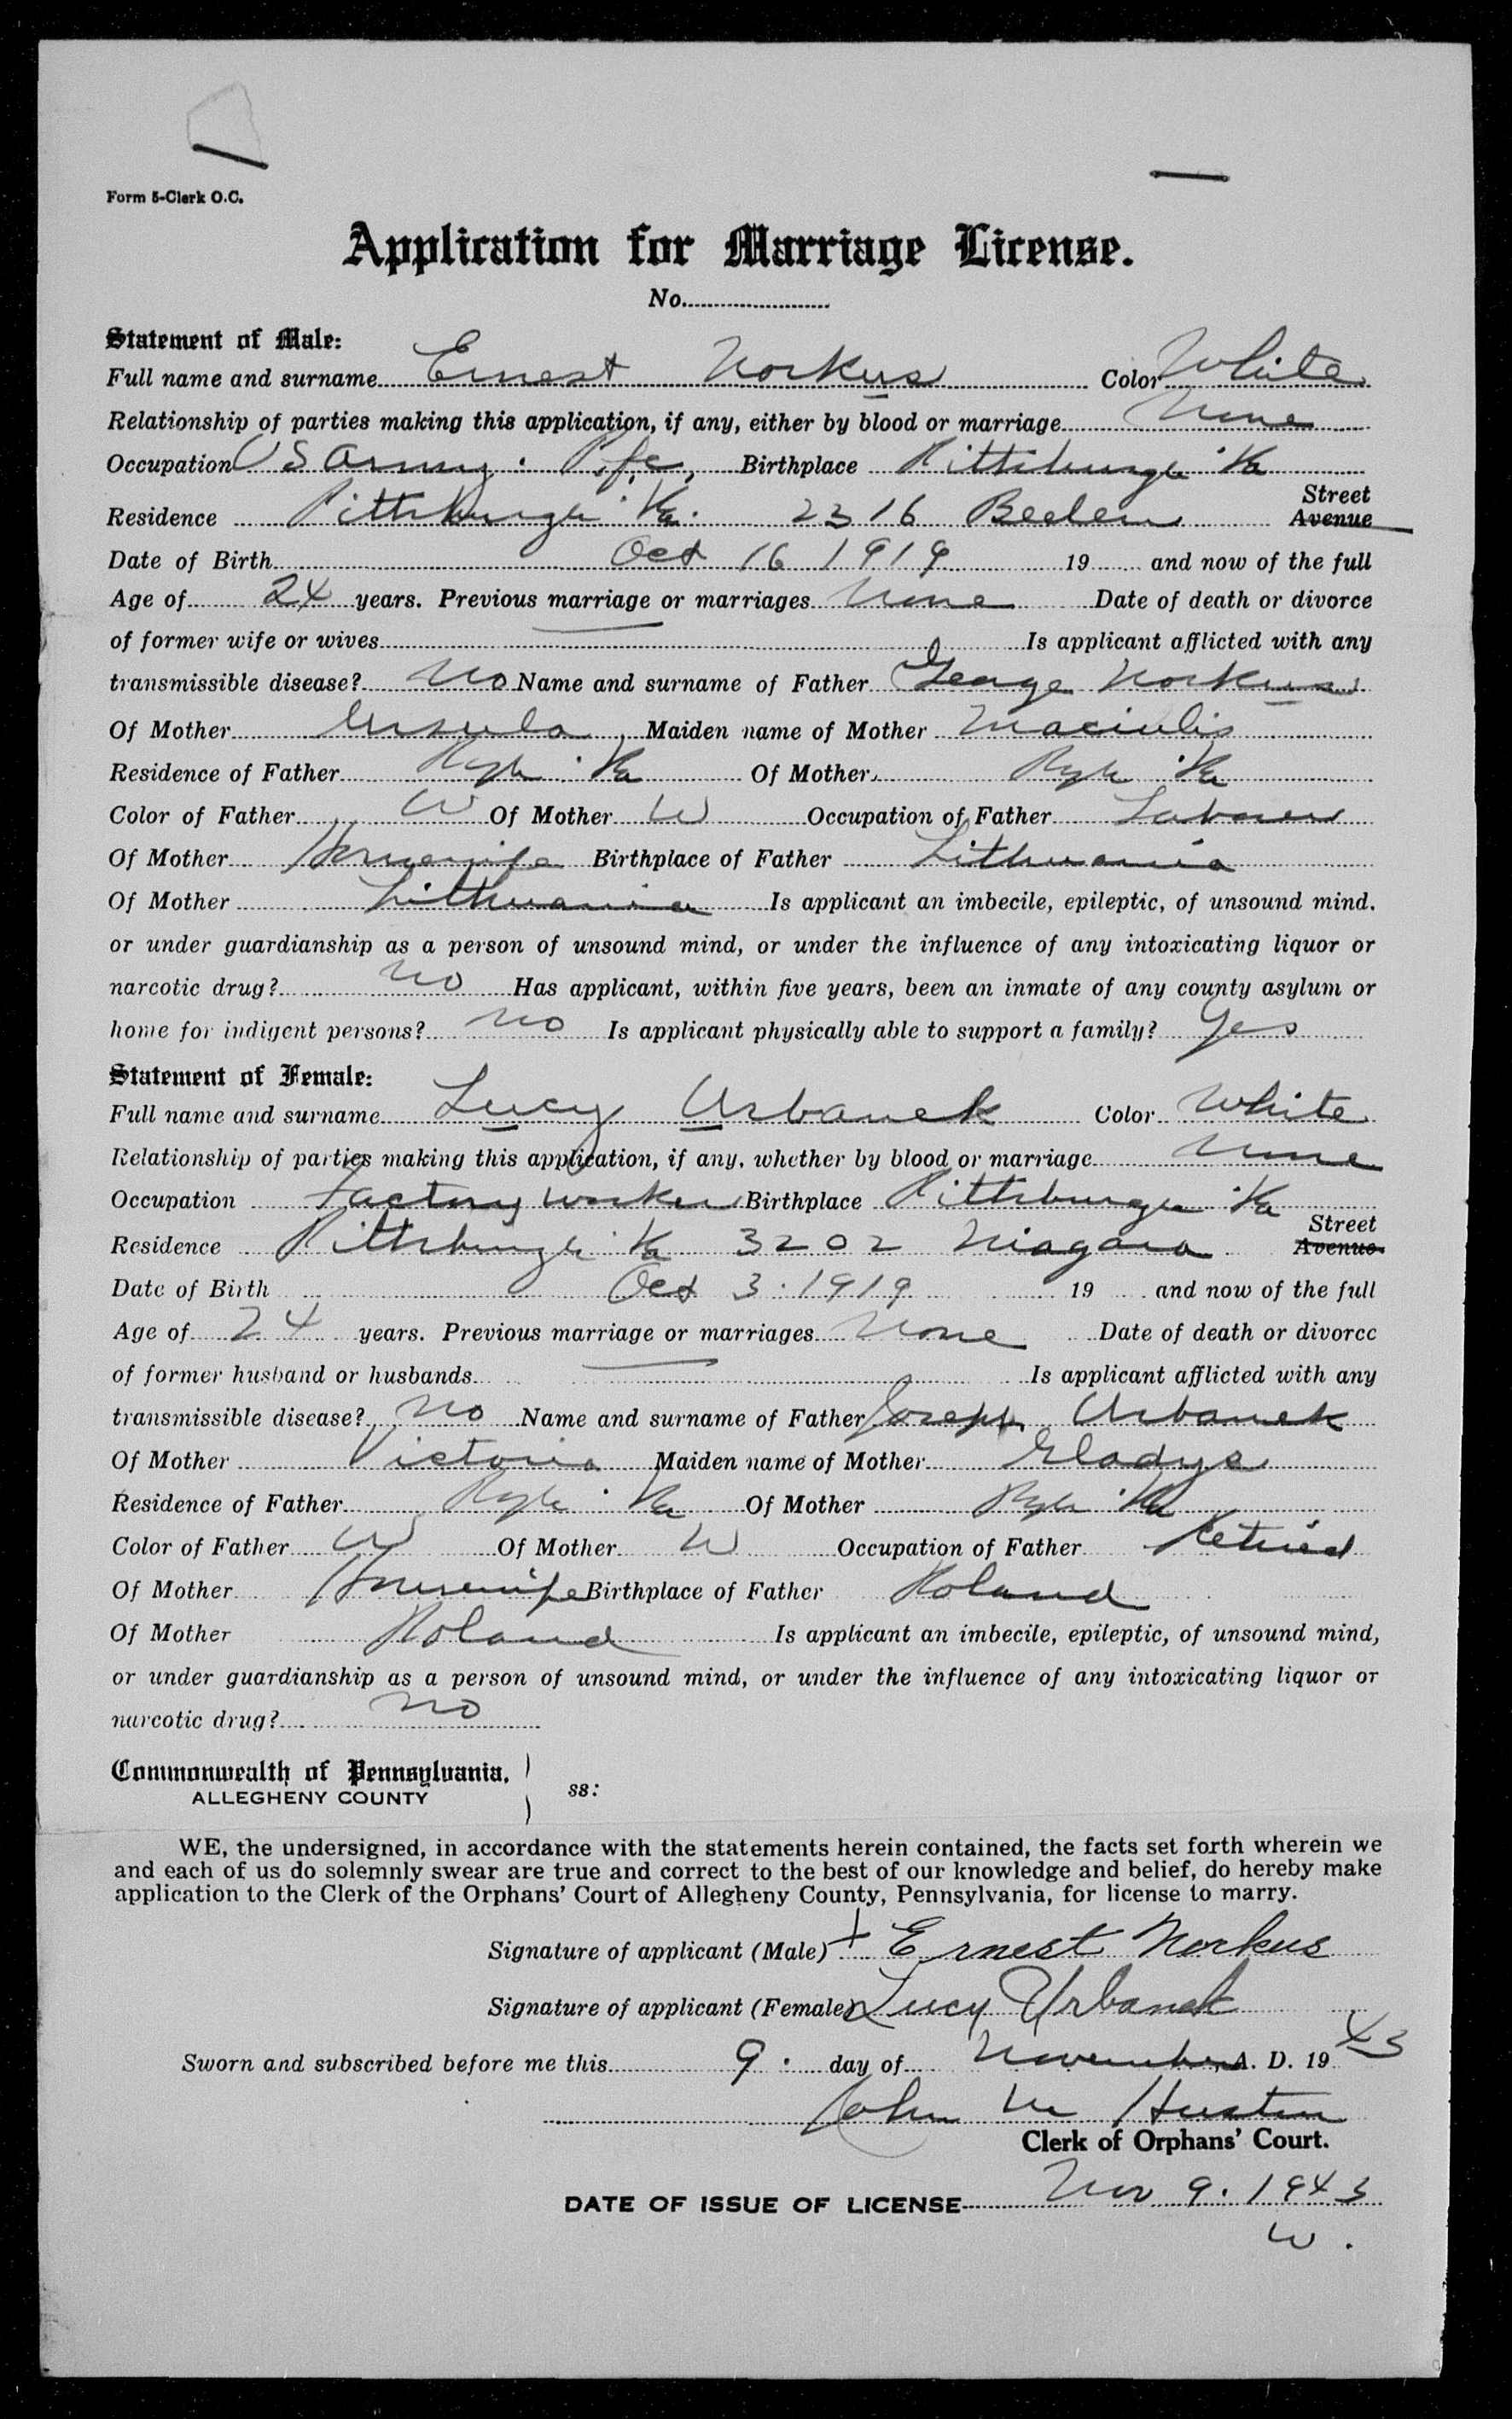 Form 5-Clerk O.C.
Application for Marriage License.
No.
Statement of Male:
Full name and surname Ernest Norkus Color White
Relationship of parties making this application, if any, either by blood or marriage None
Occupation US Army. Pfc, Birthplace Pittsburgh Pa
Street
Residence Pittsburgh Pa. 2316 Beelen Avenue
Date of Birth Oct 16 1919 19 and now of the full
Age of 24 years. Previous marriage or marriages None Date of death or divorce
of former wife or wives Is applicant afflicted with any
transmissible disease? No Name and surname of Father George Norkus
Of Mother Ursula Maiden name of Mother Maciulis
Residence of Father Pgh Pa Of Mother Pgh Pa
Color of Father W Of Mother W Occupation of Father Laborer
Of Mother Housewife Birthplace of Father Lithuania
Of Mother Lithuania Is applicant an imbecile, epileptic, of unsound mind.
or under guardianship as a person of unsound mind, or under the influence of any intoxicating liquor or
narcotic drug? No Has applicant, within five years, been an inmate of any county asylum or
home for indigent persons? No Is applicant physically able to support a family? Yes
Statement of Female:
Full name and surname Lucy Urbanek Color White
Relationship of parties making this application, if any, whether by blood or marriage None
Occupation Factory Worker Birthplace Pittsburgh Pa
Street
Residence Pittsburgh Pa 3202 Niagara Avenue
Date of Birth Oct 3. 1919 19 and now of the full
Age of 24 years. Previous marriage or marriages None Date of death or divorce
of former husband or husbands Is applicant afflicted with any
transmissible disease? No Name and surname of Father Joseph Urbanek
Of Mother Victoria Maiden name of Mother Gladys
Residence of Father Pgh Pa Of Mother Pgh Pa
Color of Father W Of Mother W Occupation of Father Retired
Of Mother Housewife Birthplace of Father Poland
Of Mother Poland Is applicant an imbecile, epileptic, of unsound mind,
or under guardianship as a person of unsound mind, or under the influence of any intoxicating liquor or
narcotic drug? No
Commonwealth of Pennsylvania,
ALLEGHENY COUNTY ss:
WE, the undersigned, in accordance with the statements herein contained, the facts set forth wherein we
and each of us do solemnly swear are true and correct to the best of our knowledge and belief, do hereby make
application to the Clerk of the Orphans' Court of Allegheny County, Pennsylvania, for license to marry.
Signature of applicant (Male) + Ernest Norkus
Signature of applicant (Female) Lucy Urbanek
Sworn and subscribed before me this 9. day of November A. D. 19 43
John M Huston
Clerk of Orphans' Court.
DATE OF ISSUE OF LICENSE Nov 9. 1943
W.